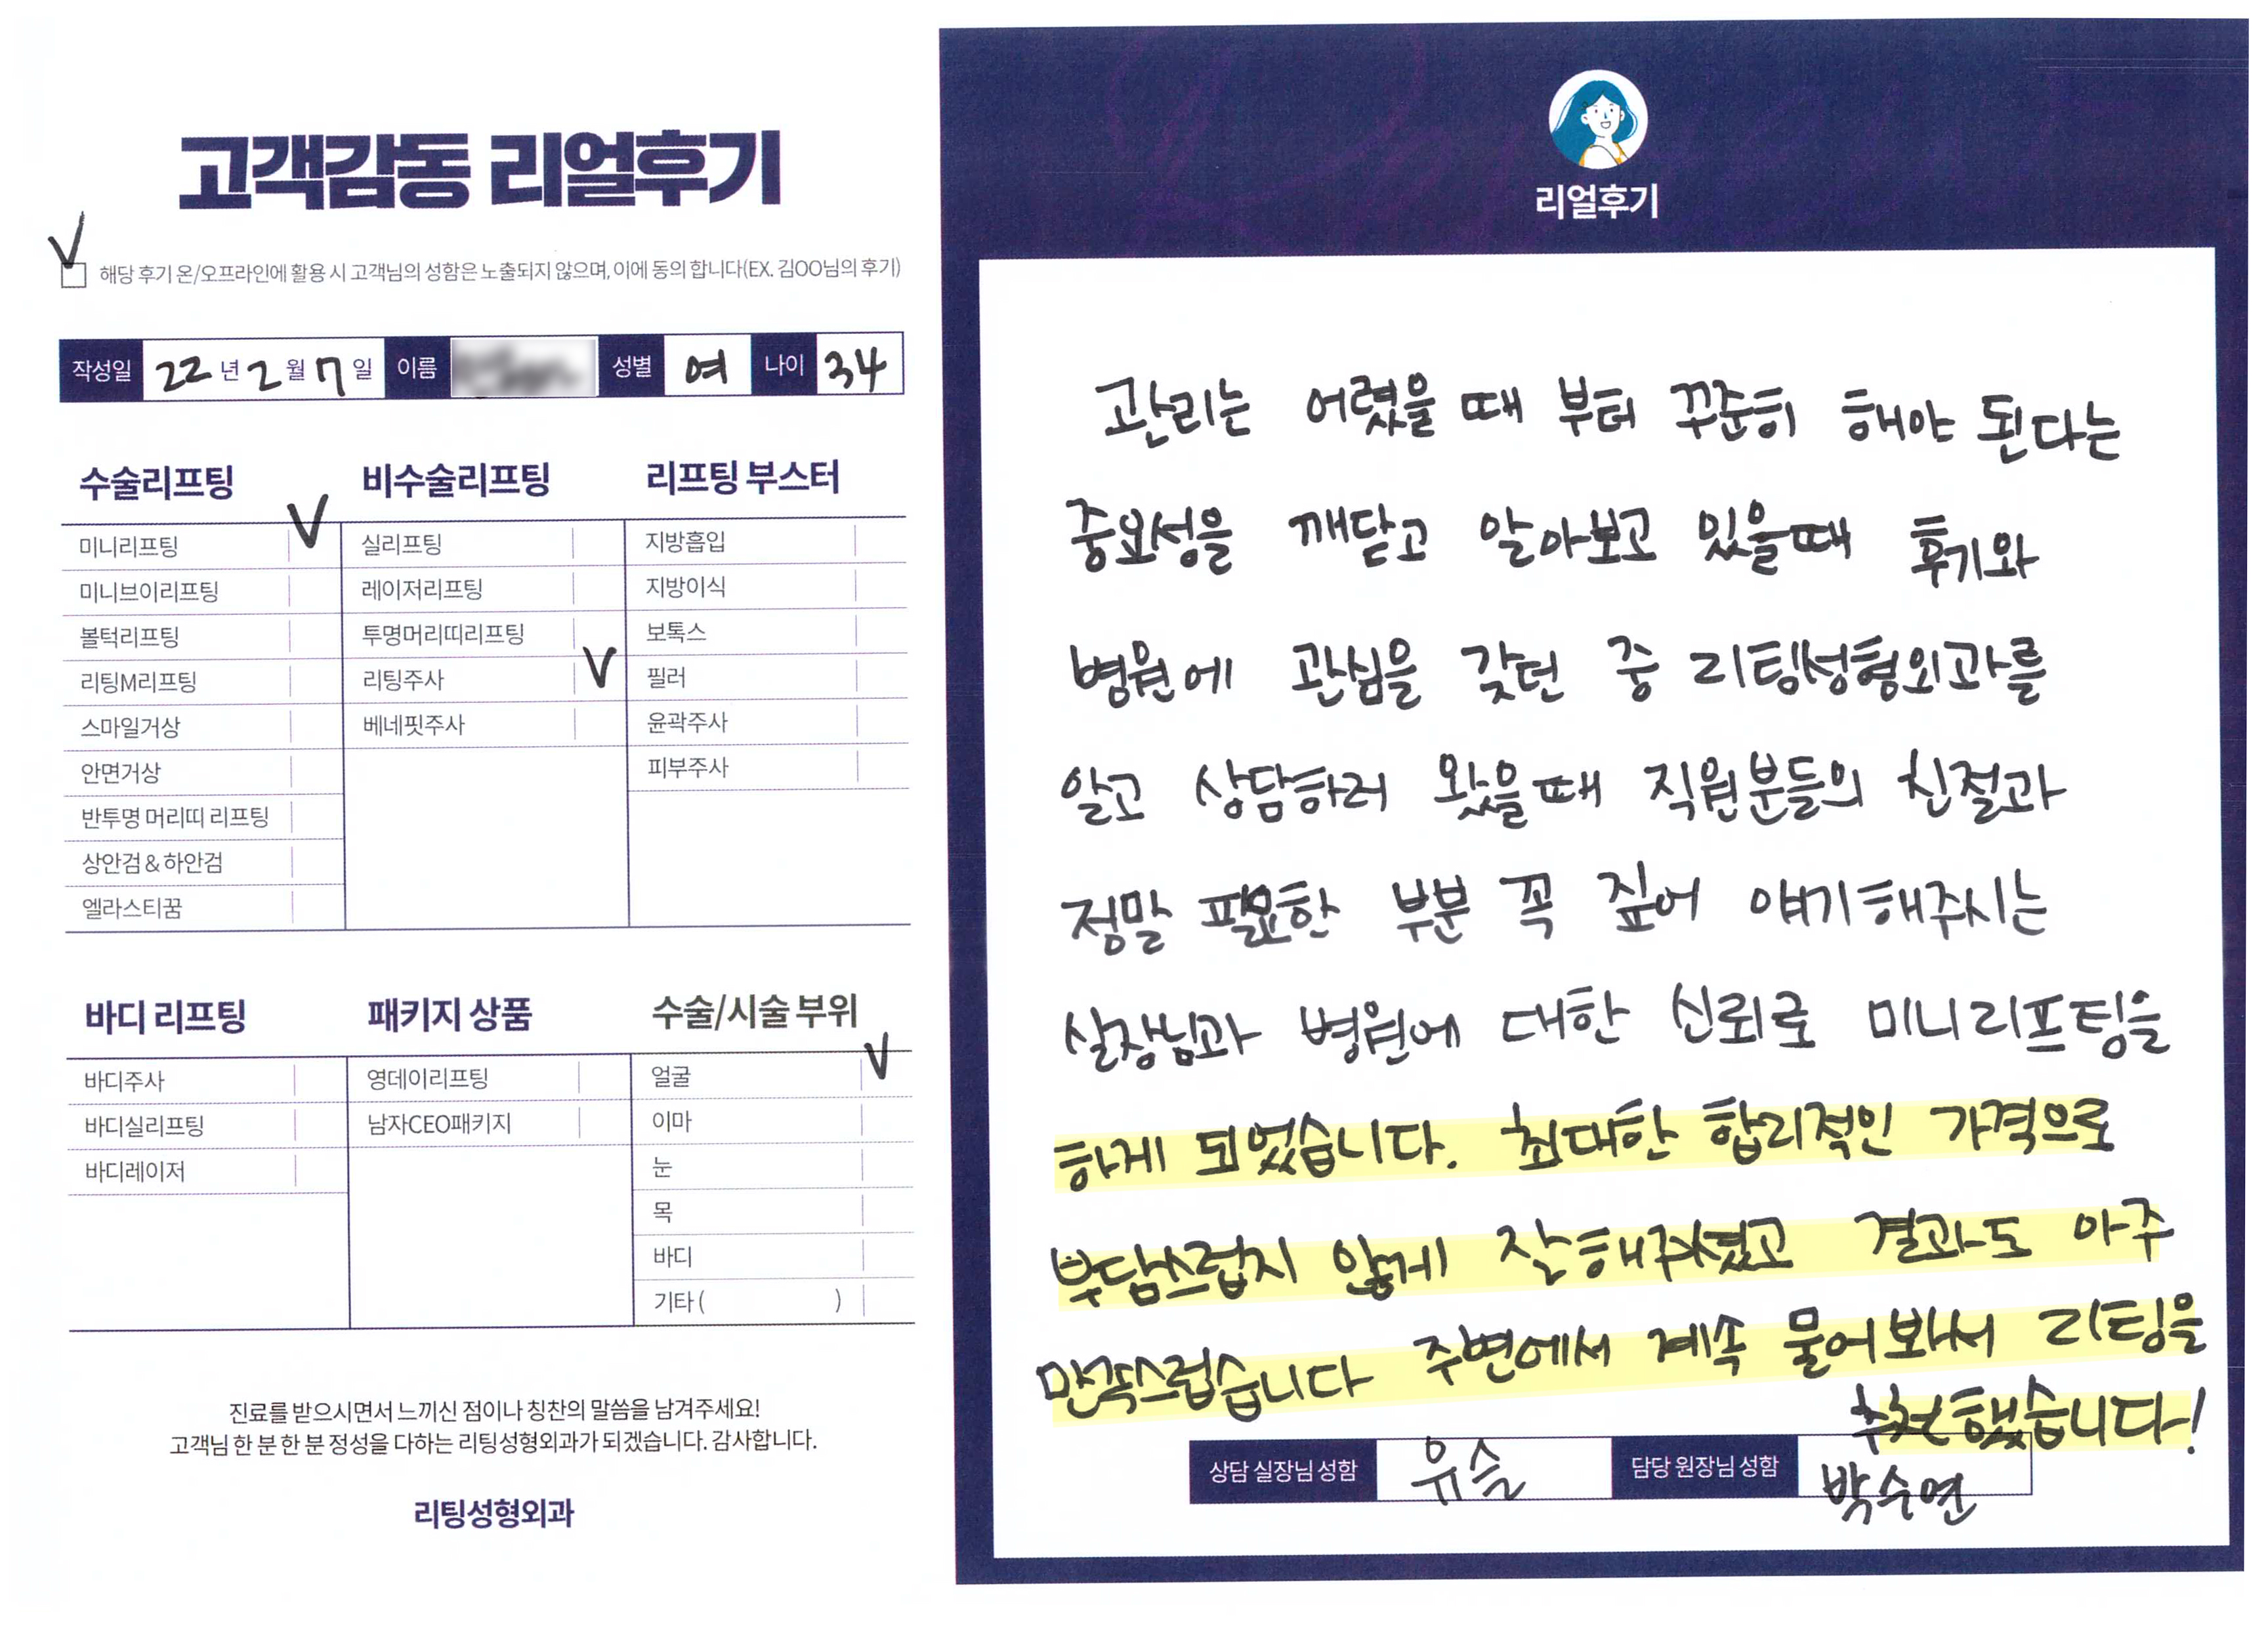 고객감동 리얼후기
해당 후기 온/오프라인에 활용 시 고객님의 성함은 노출되지 않으며, 이에 동의 합니다(EX. 김OO님의 후기)
작성일 22 년 2 월 7 일 이름 성별 여 나이 34
수술리프팅
미니리프팅 V
미니브이리프팅
볼턱리프팅
리팅M리프팅
스마일거상
안면거상
반투명 머리띠 리프팅
상안검 & 하안검
엘라스티꿈
비수술리프팅
실리프팅
레이저리프팅
투명머리띠리프팅
리팅주사 V
베네핏주사
리프팅 부스터
지방흡입
지방이식
보톡스
필러
윤곽주사
피부주사
바디 리프팅
바디주사
바디실리프팅
바디레이저
패키지 상품
영데이리프팅
남자CEO패키지
수술/시술 부위
얼굴 V
이마
눈
목
바디
기타 ( )
진료를 받으시면서 느끼신 점이나 칭찬의 말씀을 남겨주세요!
고객님 한 분 한 분 정성을 다하는 리팅성형외과가 되겠습니다. 감사합니다.
리팅성형외과
리얼후기
관리는 어렸을 때 부터 꾸준히 해야 된다는
중요성을 깨닫고 알아보고 있을때 후기와
병원에 관심을 갖던 중 리팅성형외과를
알고 상담하러 왔을때 직원분들의 친절과
정말 필요한 부분 꼭 짚어 얘기해주시는
실장님과 병원에 대한 신뢰로 미니리프팅을
하게 되었습니다. 최대한 합리적인 가격으로
부담스럽지 않게 잘해주셨고 결과도 아주
만족스럽습니다 주변에서 계속 물어봐서 리팅을
추천했습니다!
상담 실장님 성함 유슬 담당 원장님 성함 박수연